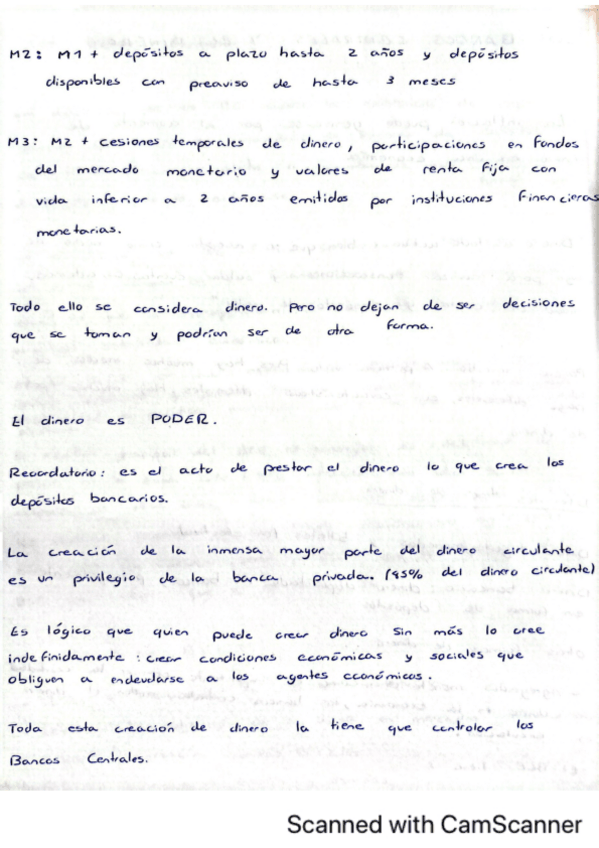 M2: M1 + depósitos a plazo hasta 2 años y depósitos
disponibles con preaviso de hasta 3 meses
M3: M2 + cesiones temporales de dinero, participaciones en fondos
del mercado monetario y valores de renta fija con
vida inferior a 2 años emitidos por instituciones financieras
monetarias.
Todo ello se considera dinero. Pero no dejan de ser decisiones
que se toman y podrían ser de otra forma.
El dinero es PODER.
Recordatorio: es el acto de prestar el dinero lo que crea los
depósitos bancarios.
La creación de la inmensa mayor parte del dinero circulante
es un privilegio de la banca privada. (95% del dinero circulante)
Es lógico que quien puede crear dinero sin más lo cree
indefinidamente: crear condiciones económicas y sociales que
obliguen a endeudarse a los agentes económicos.
Toda esta creación de dinero la tiene que controlar los
Bancos Centrales.
Scanned with CamScanner